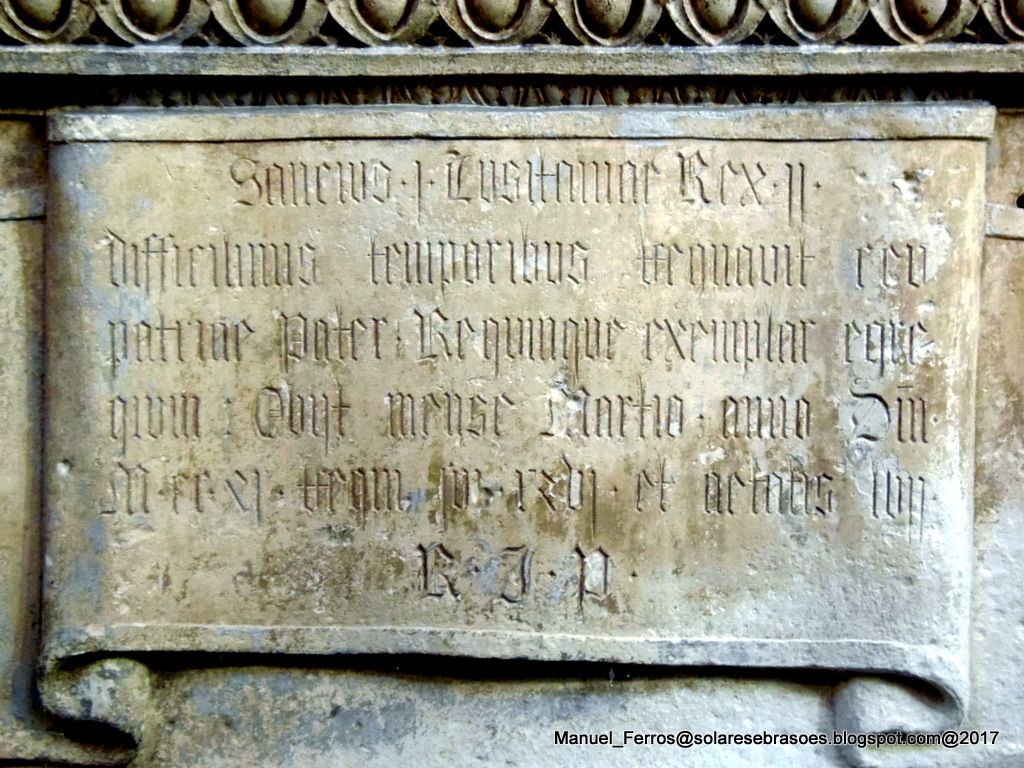 Sancius · j · Lusitaniae Rex · ij ·
difficilimis temporibus regnavit ceu
patriae Pater : Regumque exemplar egre
gium : Obijt mense Martio · anno Dni ·
M · cc · xj · regni et aetatis lvij
R · I · P ·
Manuel_Ferros@solaresebrasoes.blogspot.com@2017